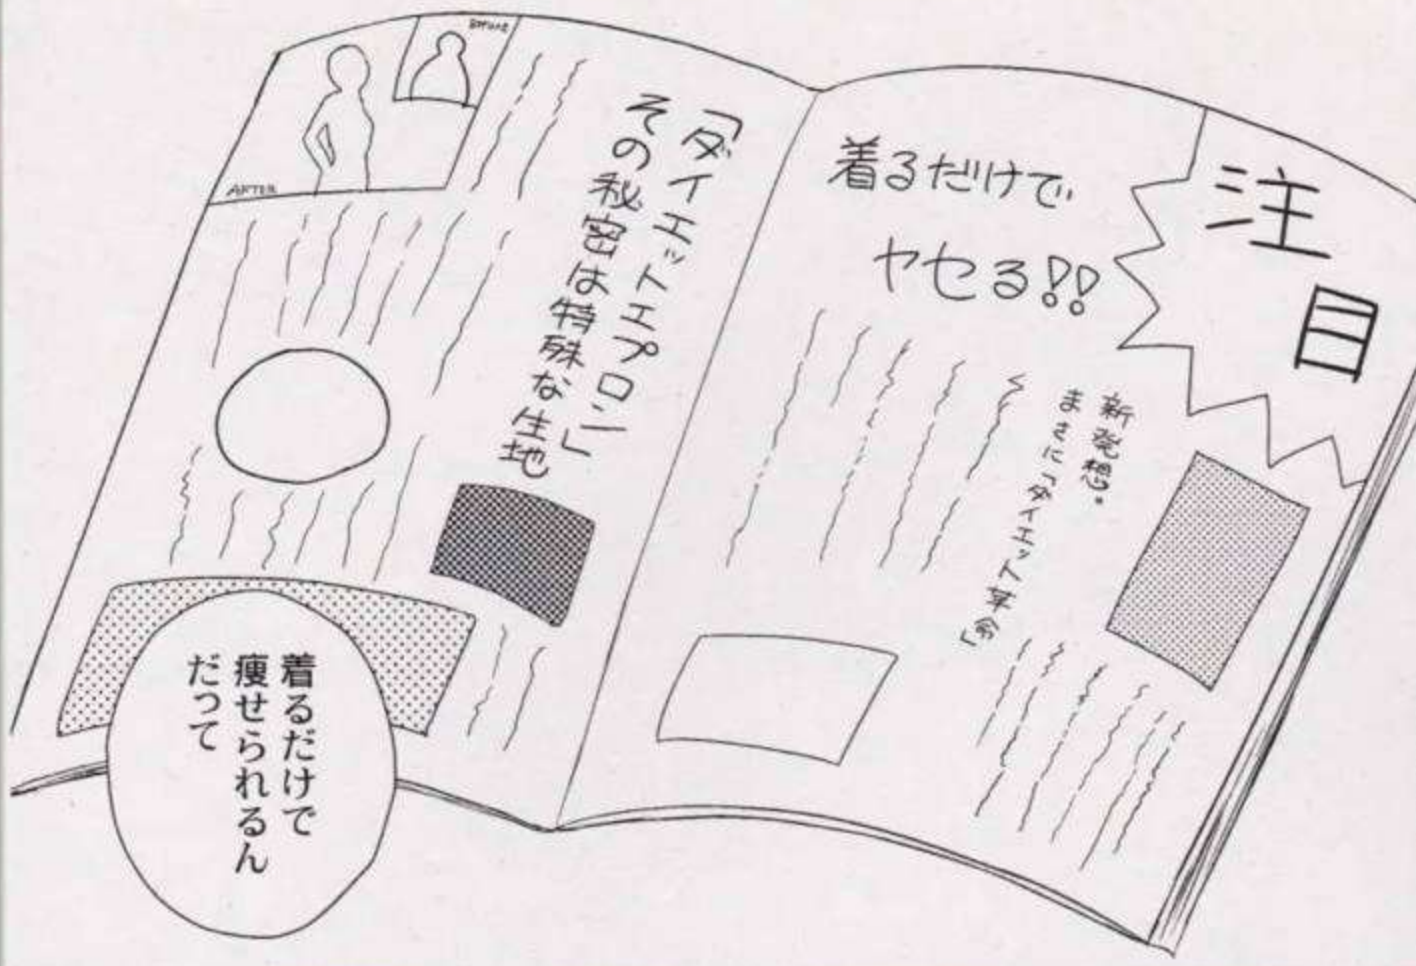 注目
着るだけで
ヤセる!!
新発想。
まさに「ダイエット革命」
「ダイエットエプロン」
その秘密は特殊な生地
Before
AFTER
着るだけで
痩せられるん
だって